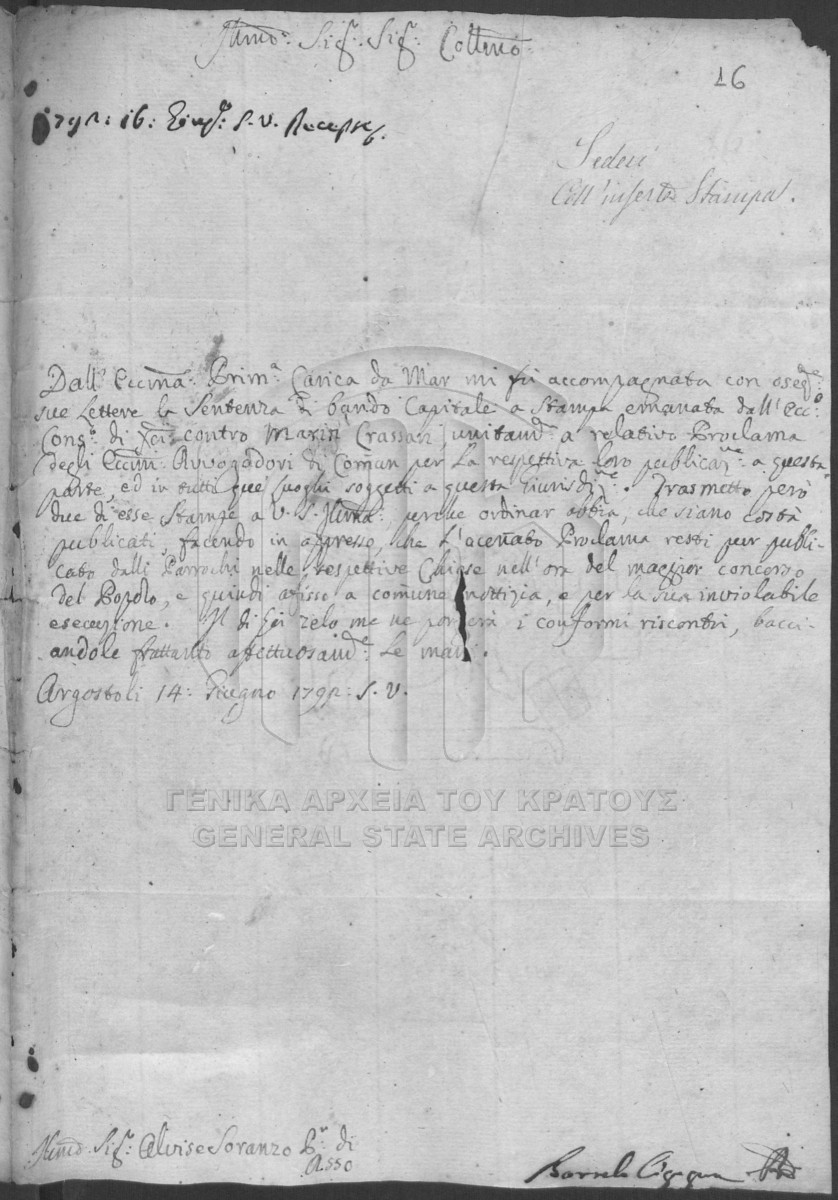 Illmo: Sigr: Sigr: Collmo:
16
1792: 16: S. V. Recepte
Sedeci
Coll' inserta Stampa.
Dall' Eccma: Prima: Carica da Mar mi fù accompagnata con
sue Lettere la Sentenza di bando Capitale a Stampa emanata dall' Ecc:o
Consº: di Xci: contro Marin Crassan, unitamte: a relativo Proclama
degli Eccmi: Avvogadori di Comun per la respettiva loro publicazne: a questa
parte, ed in tutti que' luoghi soggetti a questa Giurisdne:. Trasmetto però
due di esse Stampe a V. S. Illma: perche ordinar abbia, che siano costà
publicati, facendo in appresso, che l' acenato Proclama resti pur publi-
cato dalli Parrochi nelle respettive Chiese nell' ora del maggior concorso
del Popolo, e quindi afisso a comune nottizia, e per la sua inviolabile
esecuzione. Il di Lei zelo me ne porgerà i conformi riscontri, bacci-
andole frattanto afettuosamte: le mani.
Argostoli 14: Giugno 1792: S. V.
ΓΕΝΙΚΑ ΑΡΧΕΙΑ ΤΟΥ ΚΡΑΤΟΥΣ
GENERAL STATE ARCHIVES
Illmo: Sigr: Alvise Soranzo Pr: di
Asso